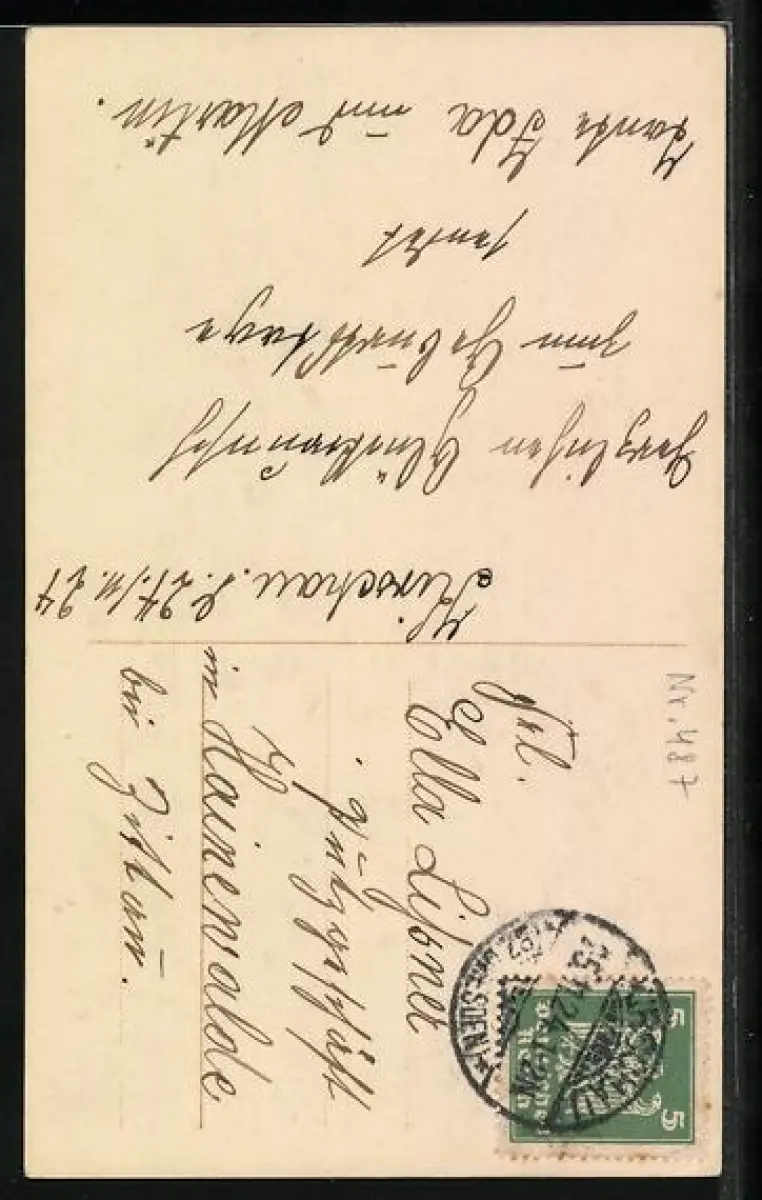 Kirschau. d. 24./11.24
Herzlichen Glückwunsch
zum Geburtstage
sendet
Tante Ida und Martin.
Frl.
Ella
Putzgeschäft
in Hainewalde
bei Zittau.
Nr. 487
5 5
Deutsches
Reich